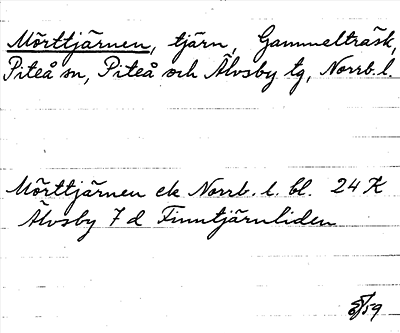 Mörttjärnen, tjärn, Gammelträsk,
Piteå sn, Piteå och Älvsby tg, Norrb. l.
Mörttjärnen ek Norrb. l. bl. 24 K
Älvsby 7 d Finntjärnliden